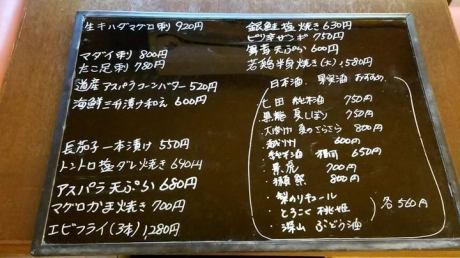 生キハダマグロ刺 920円
マダイ刺 800円
たこ足刺 780円
道産アスパラコーンバター 520円
海鮮三升漬け和え 600円
長茄子一本漬け 550円
トントロ塩ダレ焼き 640円
アスパラ天ぷら 680円
マグロかま焼き 700円
エビフライ(3本) 1,280円
銀鮭塩焼き 630円
ピリ辛サンギ 750円
天ぷら 600円
若鶏半身焼き(大) 1,580円
日本酒、果実酒 おすすめ
七田 純米酒 750円
夏しぼり 750円
夏のさらさら 800円
越州 600円
純米酒 650円
黒虎 700円
獺祭 800円
・梨のリキュール
・とろこく 桃姫
・深山 ぶどう酒
各560円